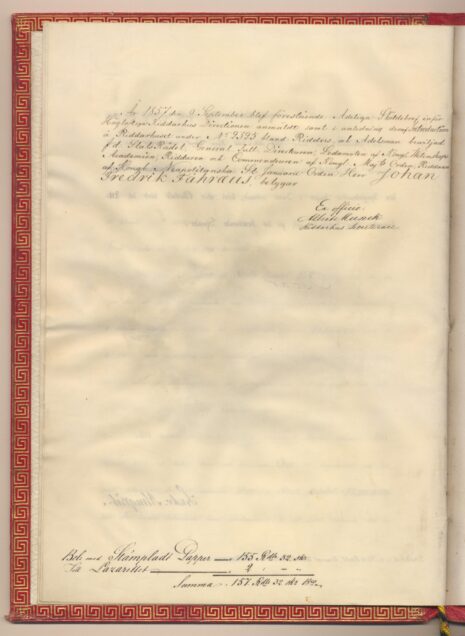 År 1857 den 9 September blef förestående Adeliga Sköldebref inför
Höglofliga Riddarhus Directionen anmäldt samt i anledning deraf Introduction
å Riddarhuset under No 2323 bland Ridders och Adelsman beviljad
f.d. Stats Rådet General Tull Directeuren, Ledamoten af Kongl. Vetenskaps
Academien, Riddaren och Commendeuren af Kongl. Maj:ts Orden, Riddaren
af Kongl. Neapolitanska St. Januarii Orden Herr Johan
Fredrik Fåhræus, betygar
Ex officio.
Riddarhus Secreterare
Bel. med Stämpladt Papper 155 Rdr 32 sk.
Till Lazarettet 2 " "
Summa 157 Rdr 32 sk